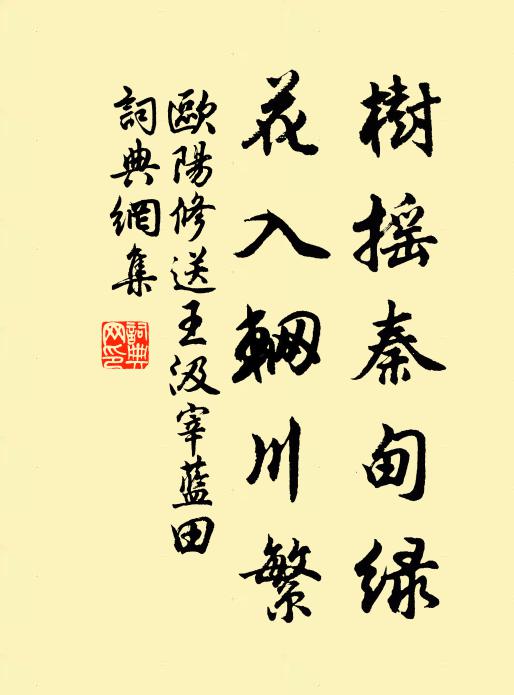 樹摇秦甸緑
花入輞川繁
歐陽修送王汲宰藍田
詞典網集
詞典
网印